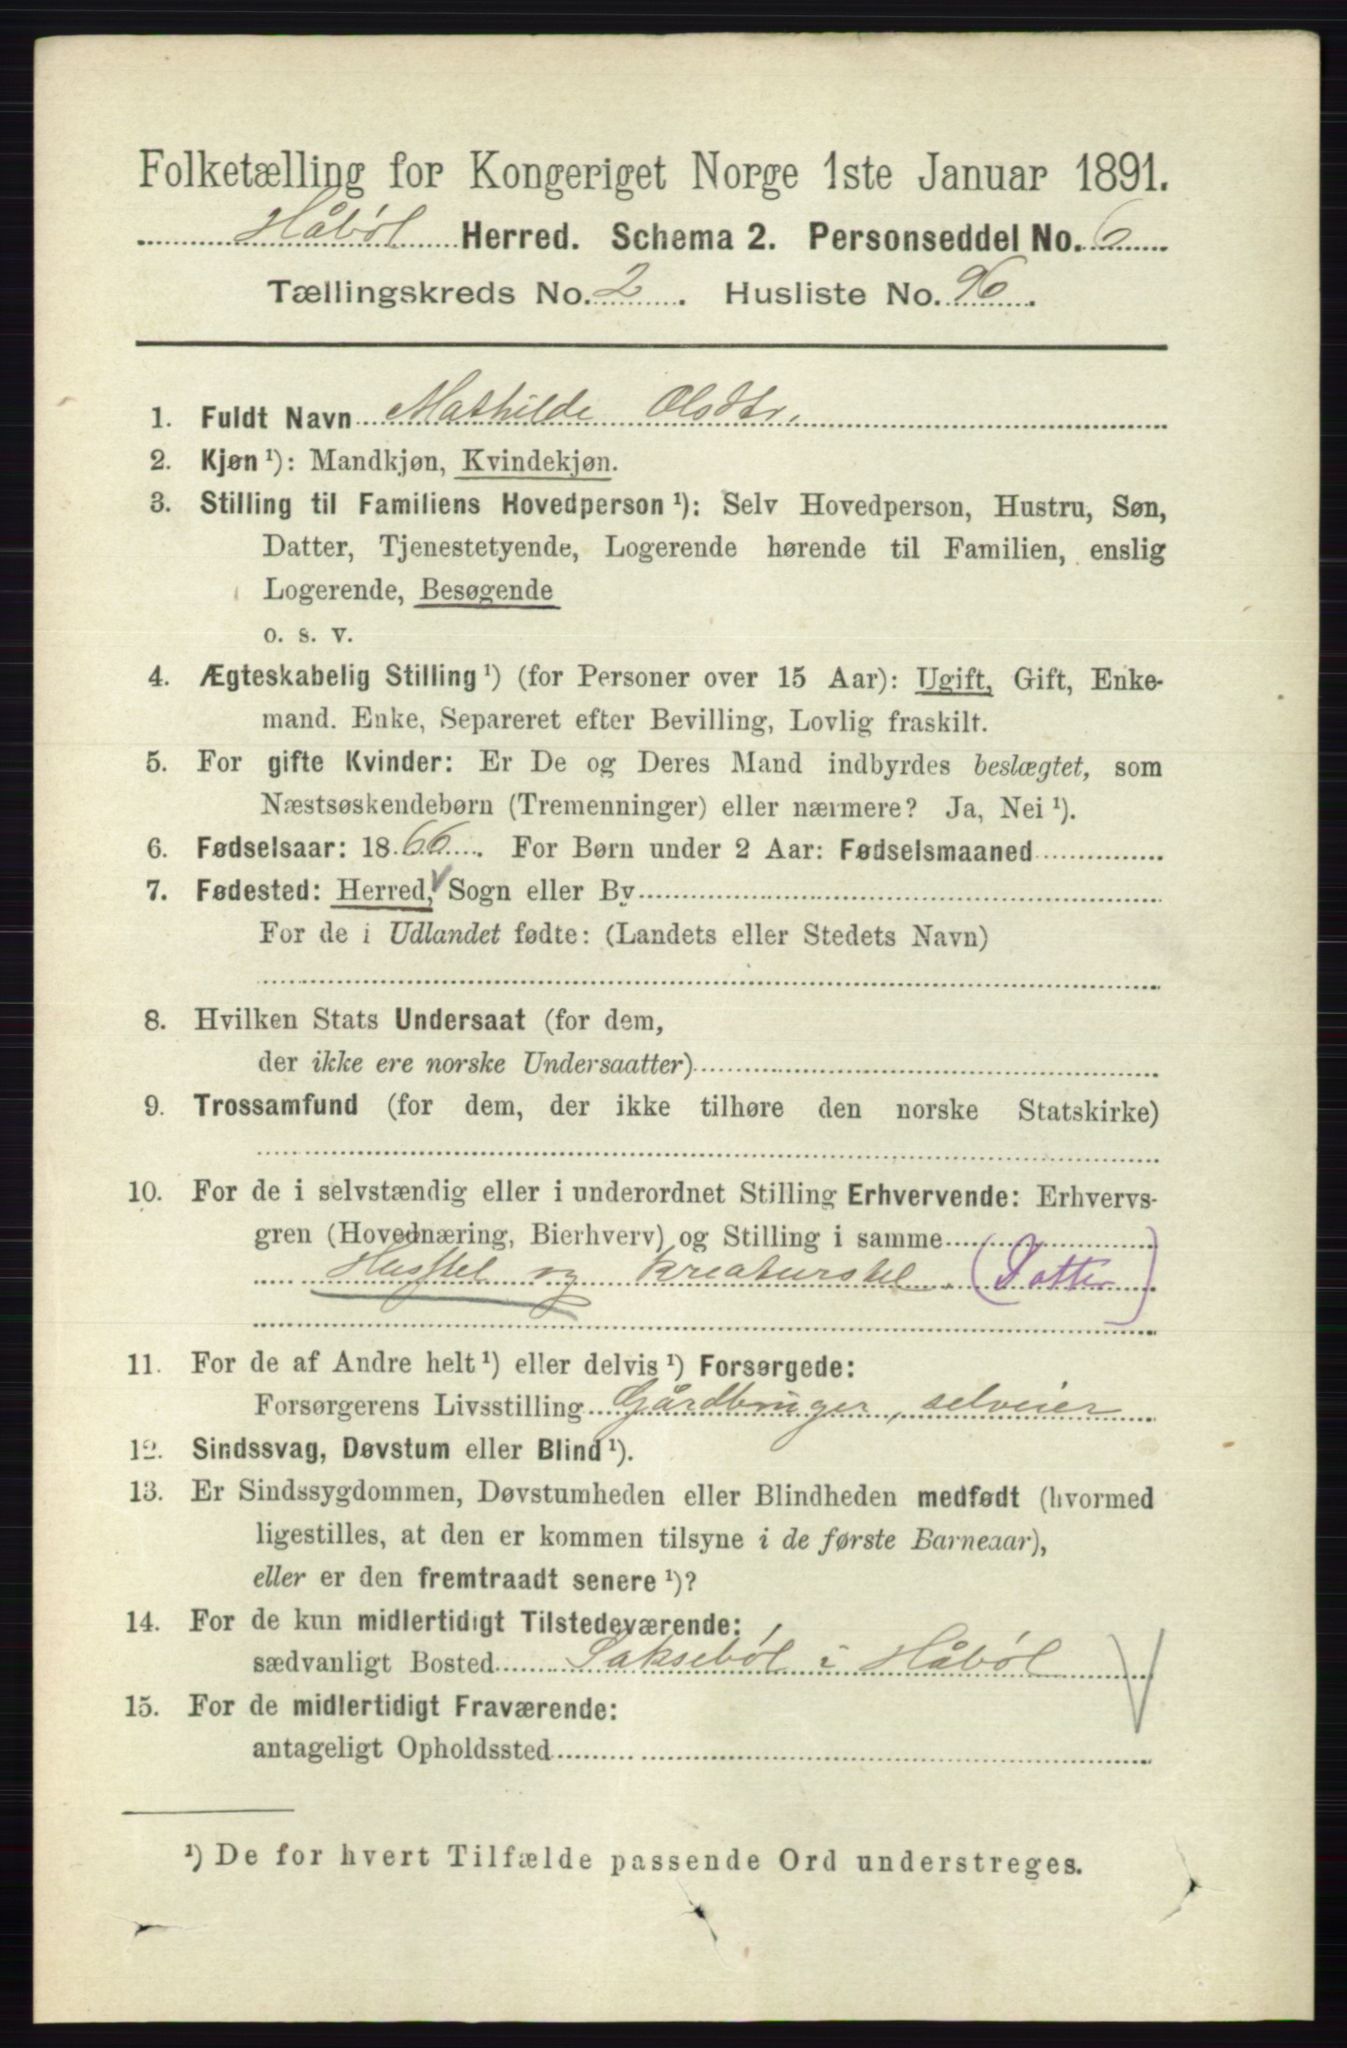 Folketælling for Kongeriget Norge 1ste Januar 1891.
Håbøl Herred. Schema 2. Personseddel No. 6
Tællingskreds No. 2. Husliste No. 96.
1. Fuldt Navn Mathilde Olsdtr.
2. Kjøn ¹): Mandkjøn, Kvindekjøn.
3. Stilling til Familiens Hovedperson ¹): Selv Hovedperson, Hustru, Søn,
Datter, Tjenestetyende, Logerende hørende til Familien, enslig
Logerende, Besøgende
o. s. v.
4. Ægteskabelig Stilling ¹) (for Personer over 15 Aar): Ugift, Gift, Enke-
mand. Enke, Separeret efter Bevilling, Lovlig fraskilt.
5. For gifte Kvinder: Er De og Deres Mand indbyrdes beslægtet, som
Næstsøskendebørn (Tremenninger) eller nærmere? Ja, Nei ¹).
6. Fødselsaar: 1866. For Børn under 2 Aar: Fødselsmaaned
7. Fødested: Herred, Sogn eller By
For de i Udlandet fødte: (Landets eller Stedets Navn)
8. Hvilken Stats Undersaat (for dem,
der ikke ere norske Undersaatter)
9. Trossamfund (for dem, der ikke tilhøre den norske Statskirke)
10. For de i selvstændig eller i underordnet Stilling Erhvervende: Erhvervs-
gren (Hovednæring, Bierhverv) og Stilling i samme
Husstel og Kreaturstel. (Datter)
11. For de af Andre helt ¹) eller delvis ¹) Forsørgede:
Forsørgerens Livsstilling Gårdbruger, selveier
12. Sindssvag, Døvstum eller Blind ¹).
13. Er Sindssygdommen, Døvstumheden eller Blindheden medfødt (hvormed
ligestilles, at den er kommen tilsyne i de første Barneaar),
eller er den fremtraadt senere ¹)?
14. For de kun midlertidigt Tilstedeværende:
sædvanligt Bosted Saksebøl i Håbøl
15. For de midlertidigt Fraværende:
antageligt Opholdssted
¹) De for hvert Tilfælde passende Ord understreges.